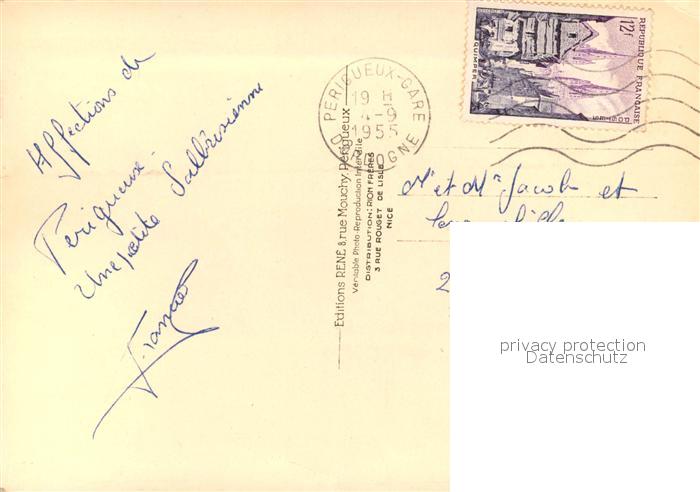 Affections de
Périgueux.
Une petite Salbrisienne
Francio
Editions RENÉ 8, rue Mouchy, Périgueux
Véritable Photo-Reproduction Interdite
DISTRIBUTION: RION FRÈRES
3 RUE ROUGET DE LISLE
NICE
PERIGUEUX-GARE
19 H
4-9
1955
DORDOGNE
12f
RÉPUBLIQUE FRANÇAISE
POSTES
QUIMPER
Mr et Me Jacob et
2
privacy protection
Datenschutz